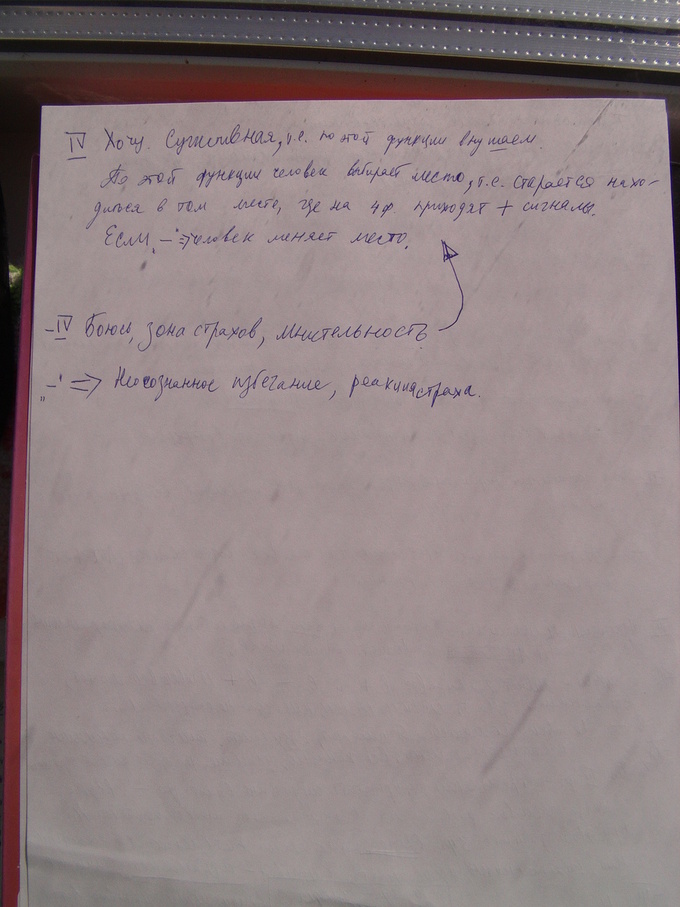 IV Хочу. Сугестивная, т.е. по этой функции внушаем.
По этой функции человек выбирает место, т.е. старается нахо-
диться в том месте, где на 4ф. приходят + сигналы.
Если „-" ⇒ человек меняет место.
-IV Боюсь, зона страхов, мнительность.
„-" ⇒ Неосознанное избегание, реакция страха.